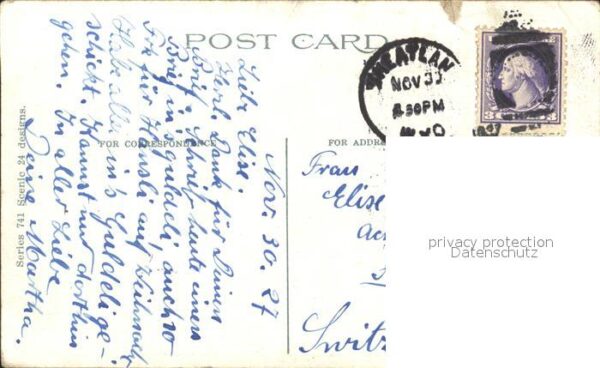 POST CARD
WHEATLAN
NOV 30
4 30 PM
FOR CORRESPONDENCE
FOR ADDR
Series 741 Scenic 24 designs.
Nov. 30. 27
Liebe Elise.
Herzl. Dank für Deinen
Brief. Schreib heute einen
Brief in's Guldeli auch 10
Frk für Hansli auf Weihnach
Habe alles in's Guldelige-
schickt. Kannst nur dorthin
gehen. In aller Liebe
Deine Martha.
Frau
Elise
Switz
privacy protection
Datenschutz